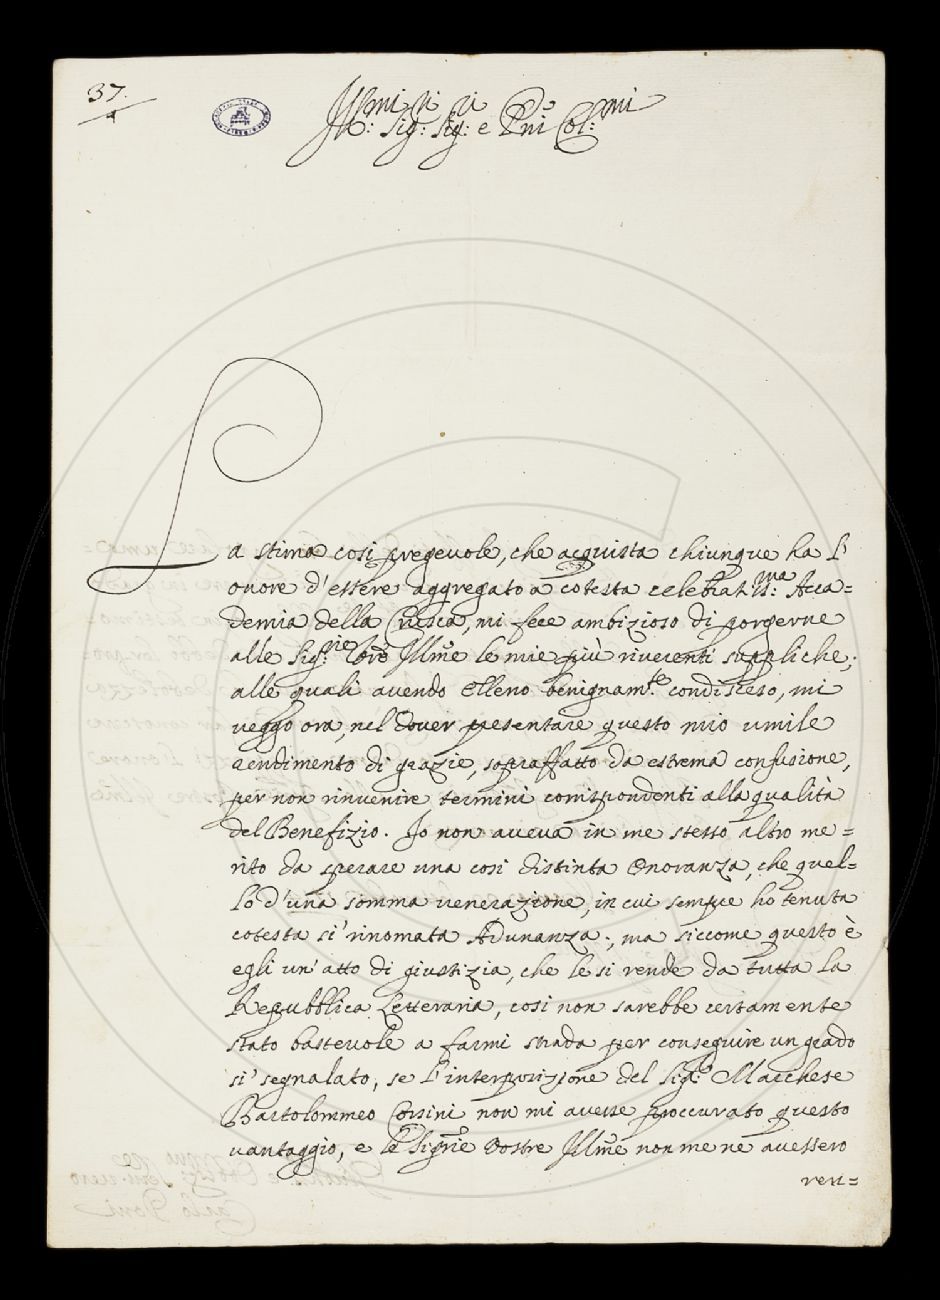 37.
Ill:mi Sig:ri Sig:ri e Pñi Col:mi
La stima così pregevole, che acquista chiunque ha l'
onore d'essere aggregato a cotesta celebratis:ma Acca=
demia della Crusca, mi fece ambizioso di porgerne
alle Sig:rie loro Illm̃e le mie più riverenti suppliche;
alle quali avendo Elleno benignam:te condisceso, mi
veggo ora, nel dover presentare questo mio umile
rendimento di grazie, sopraffatto da estrema confusione,
per non rinvenire termini corrispondenti alla qualità
del Benefizio. Io non aveva in me stesso altro me=
rito da sperare una così distinta Onoranza, che quel=
lo d'una somma venerazione, in cui sempre ho tenuta
cotesta sì rinomata Adunanza; ma siccome questo è
egli un'atto di giustizia, che le si rende da tutta la
Repubblica Letteraria, così non sarebbe certamente
stato bastevole a farmi strada per conseguire un grado
sì segnalato, se l'interposizione del Sig:re Marchese
Bartolommeo Corsini non mi avesse proccurato questo
vantaggio, e le Sigrie Vostre Illm̃e non me ne avessero
ren=